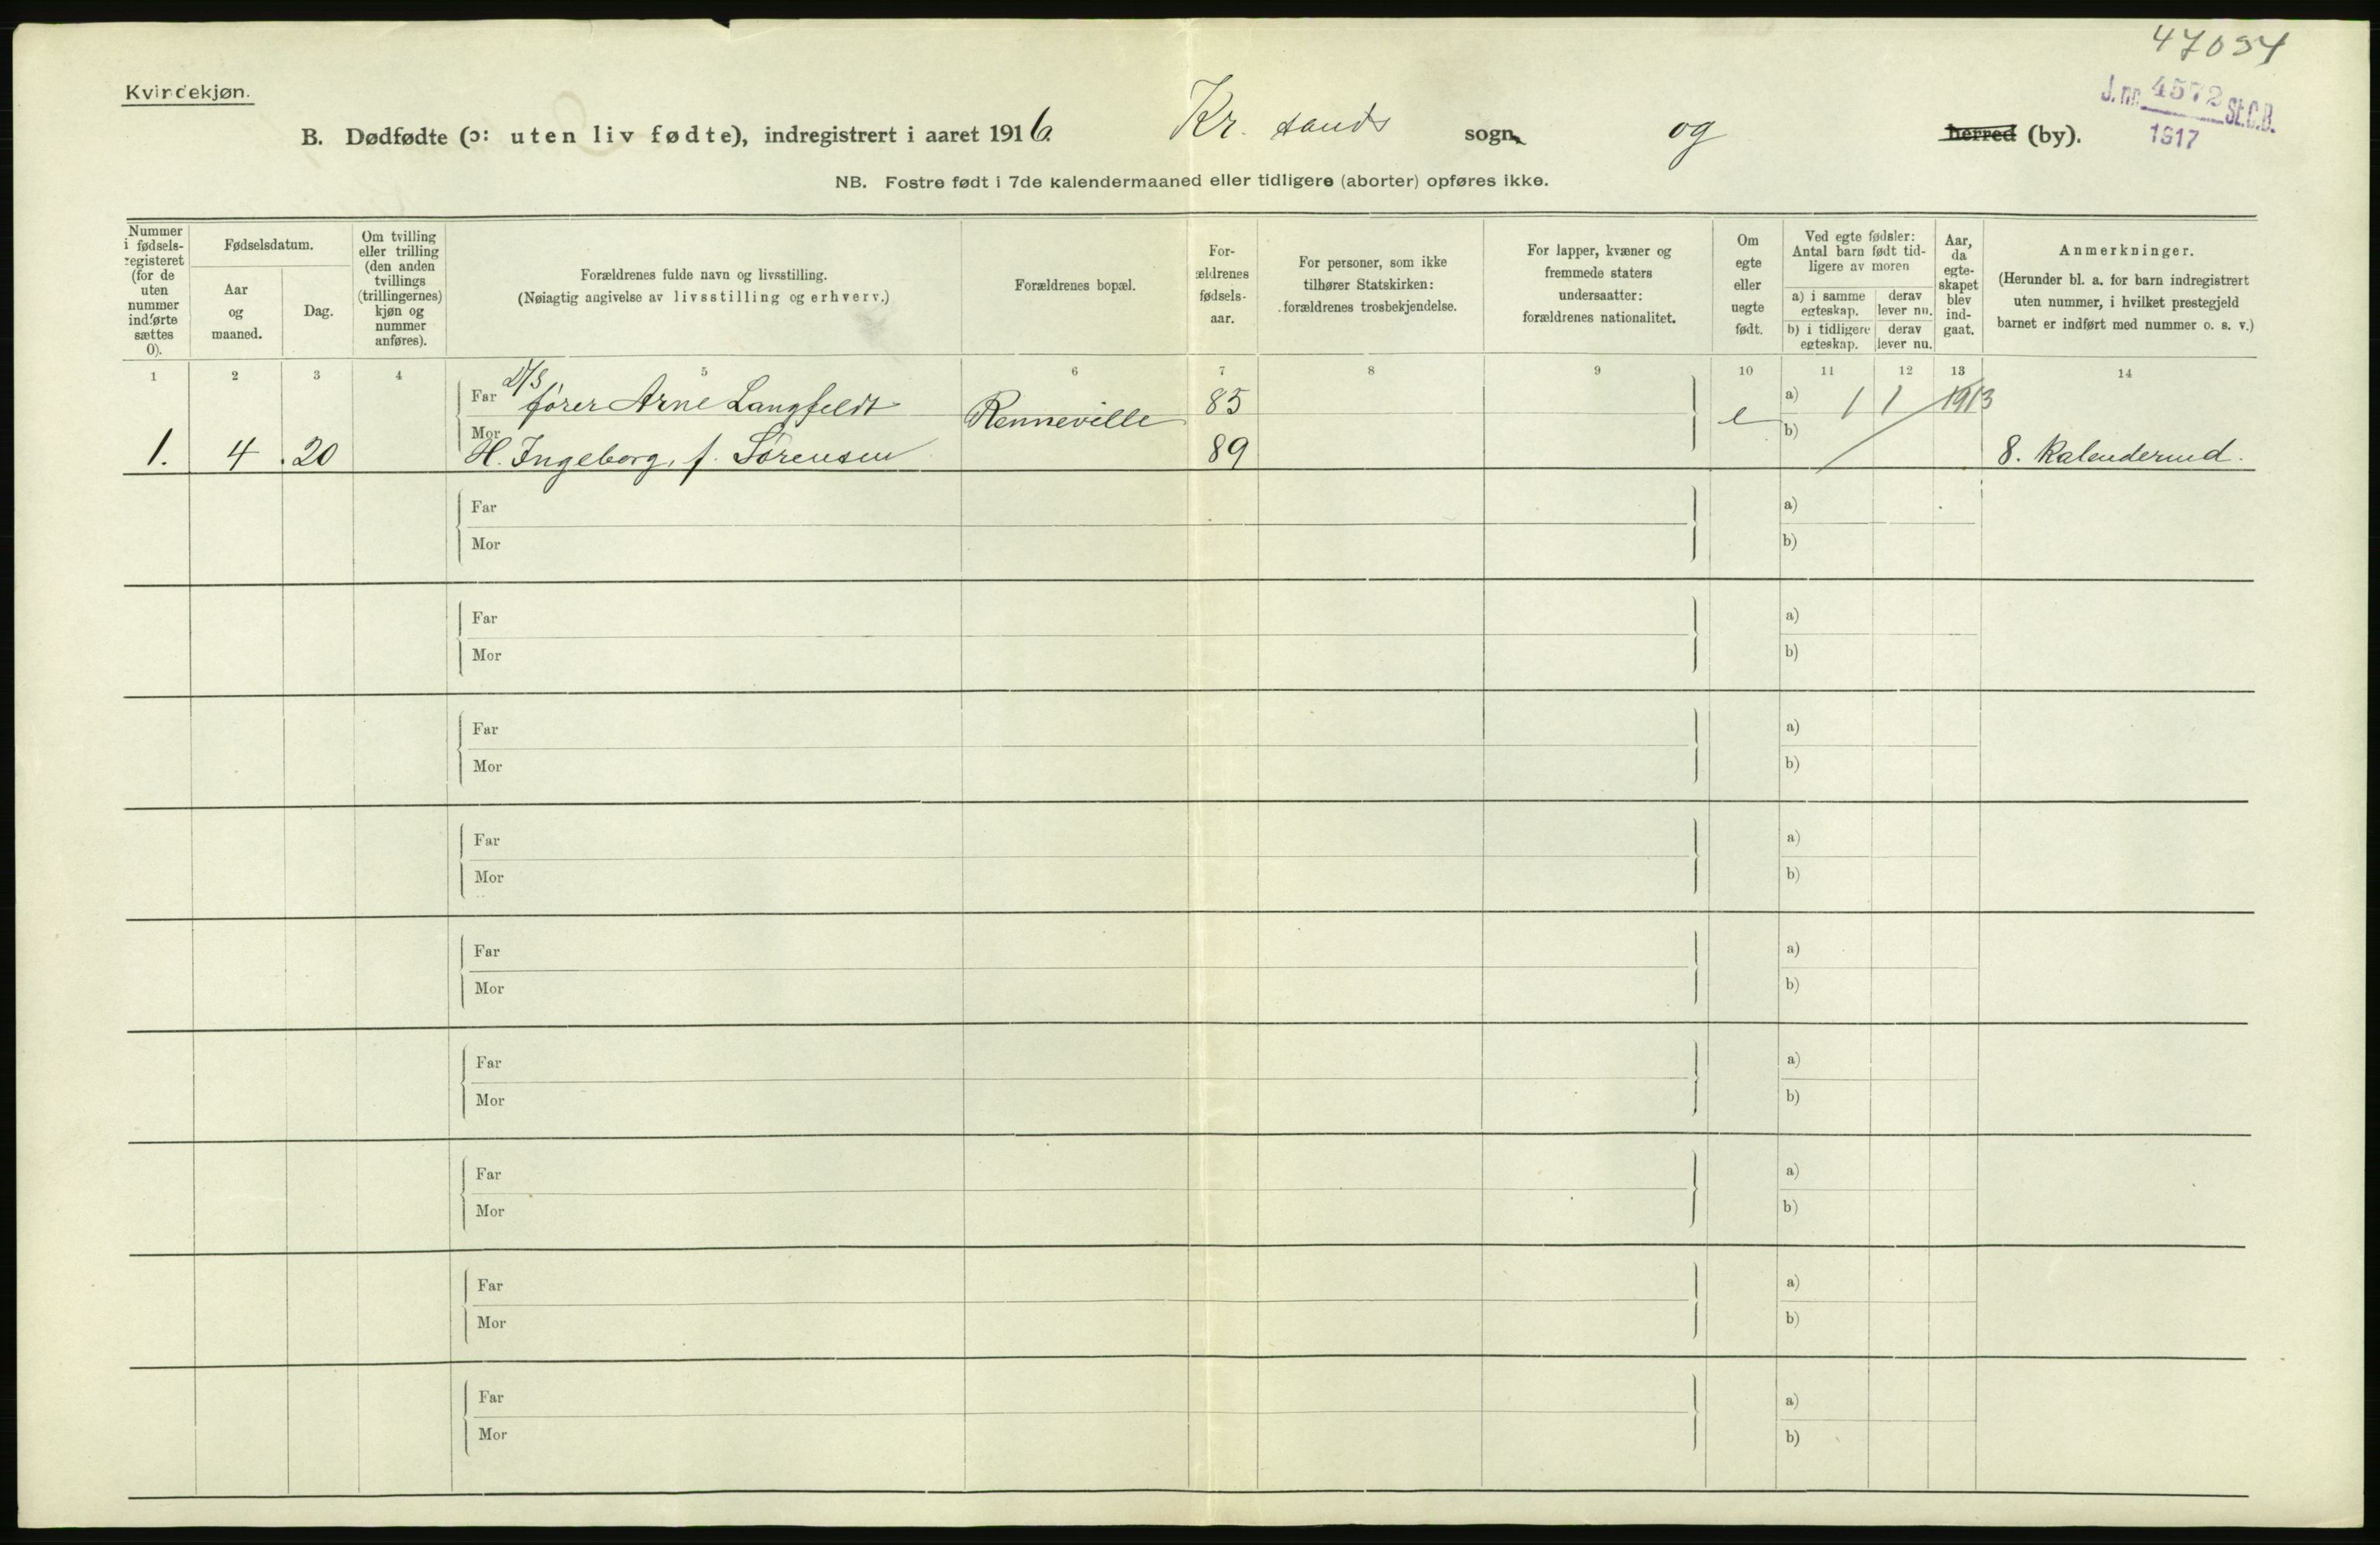 47094
Kvindekjøn.
J. nr. 4572 St.C.B.
1917
B. Dødfødte (ɔ: uten liv fødte), indregistrert i aaret 1916. Kr. sands sogn og herred (by).
NB. Fostre født i 7de kalendermaaned eller tidligere (aborter) opføres ikke.
Nummer i fødsels-registeret (for de uten nummer indførte sættes 0).
Fødselsdatum.
Aar og maaned.
Dag.
Om tvilling eller trilling (den anden tvillings (trillingernes) kjøn og nummer anføres).
Forældrenes fulde navn og livsstilling.
(Nøiagtig angivelse av livsstilling og erhverv.)
Forældrenes bopæl.
For-ældrenes fødsels-aar.
For personer, som ikke tilhører Statskirken: forældrenes trosbekjendelse.
For lapper, kvæner og fremmede staters undersaatter: forældrenes nationalitet.
Om egte eller uegte født.
Ved egte fødsler: Antal barn født tid-ligere av moren
a) i samme egteskap. derav lever nu.
b) i tidligere egteskap. derav lever nu.
Aar, da egte-skapet blev ind-gaat.
Anmerkninger.
(Herunder bl. a. for barn indregistrert uten nummer, i hvilket prestegjeld barnet er indført med nummer o. s. v.)
1 2 3 4 5 6 7 8 9 10 11 12 13 14
Far D/S fører Arne Langfeldt Renneville 85 e a) 1 1 1913
1. 4 . 20 Mor H. Ingeborg, f. Sørensen 89 b) 8. Kalendermd.
Far a)
Mor b)
Far a)
Mor b)
Far a)
Mor b)
Far a)
Mor b)
Far a)
Mor b)
Far a)
Mor b)
Far a)
Mor b)
Far a)
Mor b)
Far a)
Mor b)